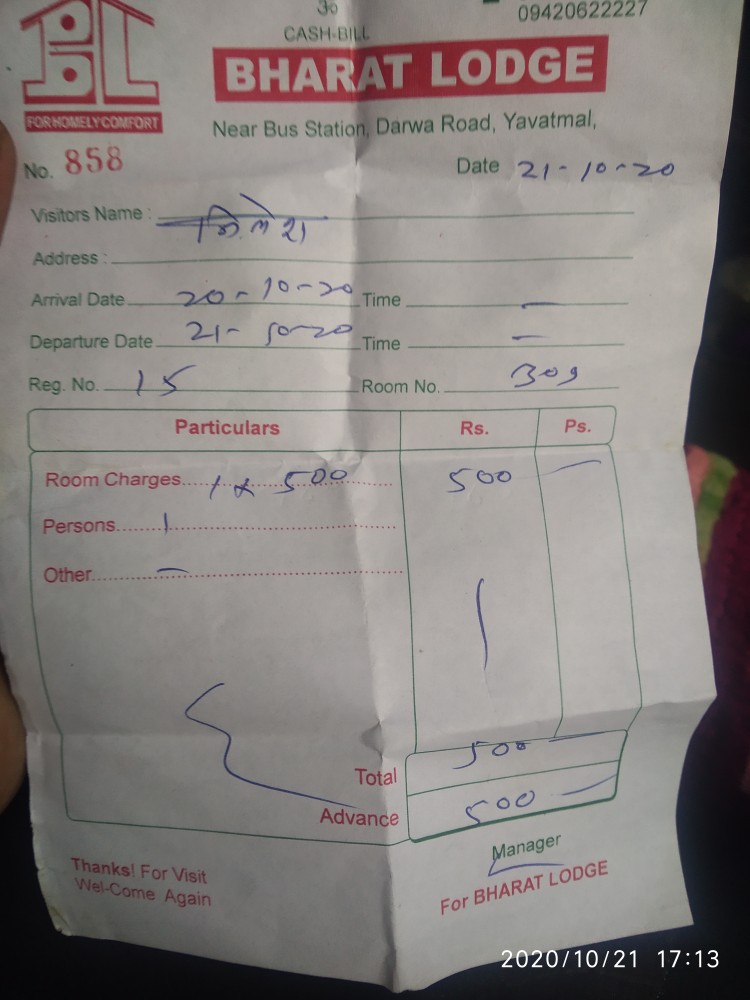 ॐ
09420622227
CASH-BILL
BHARAT LODGE
FOR HOMELY COMFORT
Near Bus Station, Darwa Road, Yavatmal,
No. 858
Date 21-10-20
Visitors Name :
Address :
Arrival Date 20-10-20 Time —
Departure Date 21-10-20 Time —
Reg. No. 15 Room No. 309
Particulars Rs. Ps.
Room Charges 1 x 500 500 —
Persons 1
Other —
Total 500 —
Advance 500 —
Manager
Thanks! For Visit
Wel-Come Again
For BHARAT LODGE
2020/10/21 17:13